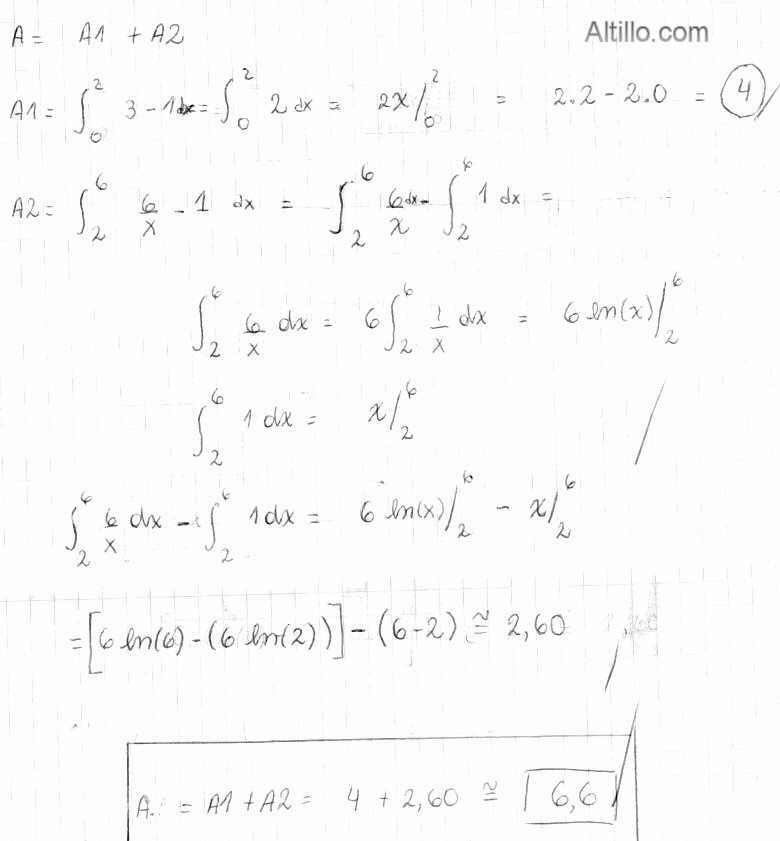 Altillo.com
A = A1 + A2
A1 = ∫₀² 3 - 1 dx = ∫₀² 2 dx = 2x/₀² = 2.2 - 2.0 = 4
A2 = ∫₂⁶ 6/x - 1 dx = ∫₂⁶ 6/x dx - ∫₂⁶ 1 dx =
∫₂⁶ 6/x dx = 6 ∫₂⁶ 1/x dx = 6 ln(x)/₂⁶
∫₂⁶ 1 dx = x/₂⁶
∫₂⁶ 6/x dx - ∫₂⁶ 1 dx = 6 ln(x)/₂⁶ - x/₂⁶
= [6 ln(6) - (6 ln(2))] - (6-2) ≅ 2,60
A. = A1 + A2 = 4 + 2,60 ≅ 6,6